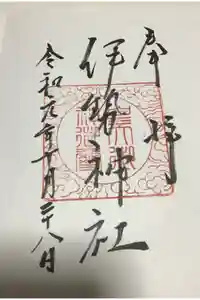 奉拝
伊勢神社
令和元年十月二十八日